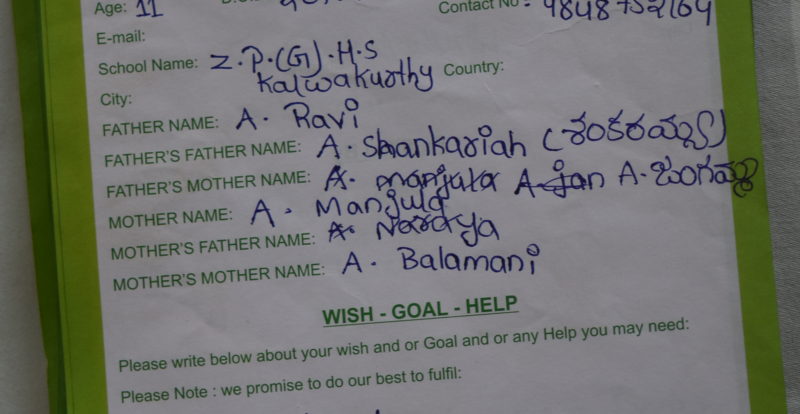 Age: 11 Contact No: 9848752164
E-mail:
School Name: Z.P.(G).H.S
Kalwakurthy Country:
City:
FATHER NAME: A. Ravi
FATHER'S FATHER NAME: A. Shankariah (శంకరయ్య)
FATHER'S MOTHER NAME: A. manjula A-jan A. జంగమ్మ
MOTHER NAME: A. Manjula
MOTHER'S FATHER NAME: A.
MOTHER'S MOTHER NAME: A. Balamani
WISH - GOAL - HELP
Please write below about your wish and or Goal and or any Help you may need:
Please Note : we promise to do our best to fulfil: